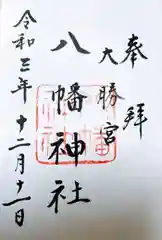 奉拝
大勝宮
八幡神社
令和三年十二月十一日